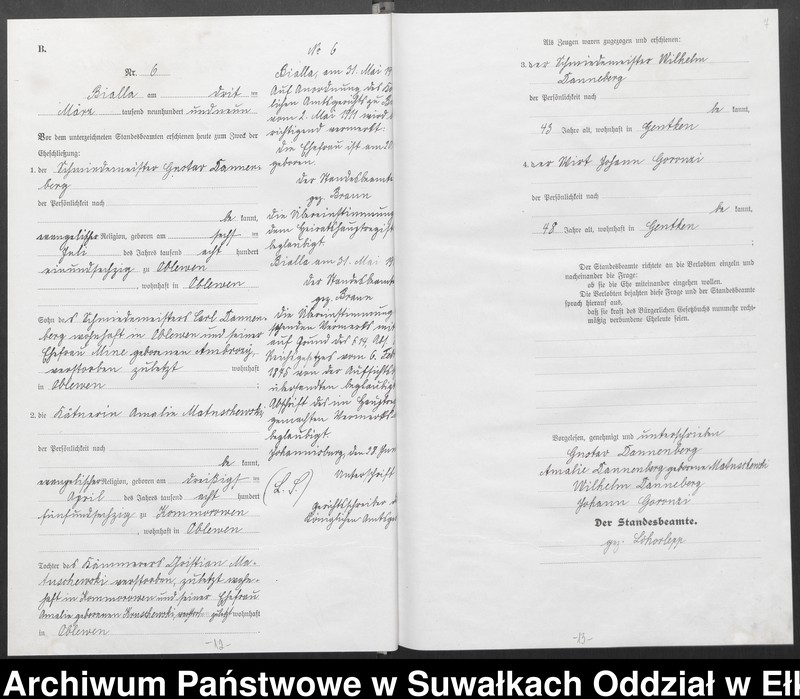 B.
Nr. 6
Bialla am drit en
März tausend neunhundert und neun
Vor dem unterzeichneten Standesbeamten erschienen heute zum Zweck der
Eheschließung:
1. der Schmiedemeister Gustav Dannen-
berg
der Persönlichkeit nach
be kannt,
evangelischer Religion, geboren am sechst en
Juli des Jahres tausend acht hundert
einundsechzig zu Oblewen
, wohnhaft in Oblewen
Sohn des Schmiedemeisters Carl Dannen-
berg wohnhaft in Oblewen und seiner
Ehefrau Mine geborenen
verstorben zuletzt wohnhaft
in Oblewen ;
2. die Kätnerin Amalie Matuschewski
der Persönlichkeit nach
be kannt,
evangelischer Religion, geboren am dreißigst en
April des Jahres tausend acht hundert
fünfundsechzig zu Kommorowen
, wohnhaft in Oblewen
Tochter des Kämmerers Christian Ma-
tuschewski verstorben, zuletzt wohn-
haft in Kommorowen und seiner Ehefrau
Amalie geborenen zuletzt wohnhaft
in Oblewen
-12-
No 6
Bialla, am 31. Mai 19
Auf Anordnung des Kö
lichen Amtsgerichts zu
vom 2. Mai 1911 wird
richtigend vermerkt:
Die Ehefrau ist am
geboren.
Der Standesbeamte
gez. Braun
Die Übereinstimmung
dem Heiratshauptregist
beglaubigt
Bialla am 31. Mai 19
Der Standesbeamte
gez. Braun
Die Übereinstimmung
stehenden Vermerks mit
auf Grund des § 14, Abs.
Reichsgesetzes vom 6. Feb
1875 von der Aufsichts
übersandten beglaubig
Abschrift des im Hauptreg
gemachten Vermerks
beglaubigt.
Johannisburg, den 28. Jun
(L. S.) Unterschrift
Gerichtsschreiber
Königlichen Amtsge
Als Zeugen waren zugezogen und erschienen:
3. der Schmiedemeister Wilhelm
Danneberg
der Persönlichkeit nach
be kannt,
43 Jahre alt, wohnhaft in Gentken
4. der Wirt Johann Goronzi
der Persönlichkeit nach
be kannt,
48 Jahre alt, wohnhaft in Gentken
;
Der Standesbeamte richtete an die Verlobten einzeln und
nacheinander die Frage:
ob sie die Ehe miteinander eingehen wollen.
Die Verlobten bejahten diese Frage und der Standesbeamte
sprach hierauf aus,
daß sie kraft des Bürgerlichen Gesetzbuchs nunmehr recht-
mäßig verbundene Eheleute seien.
Vorgelesen, genehmigt und unterschrieben
Gustav Dannenberg
Amalie Dannenberg geborene Matuschewski
Wilhelm Danneberg
Johann Goronzi
Der Standesbeamte.
gez.
-13-
Archiwum Państwowe w Suwałkach Oddział w Eł